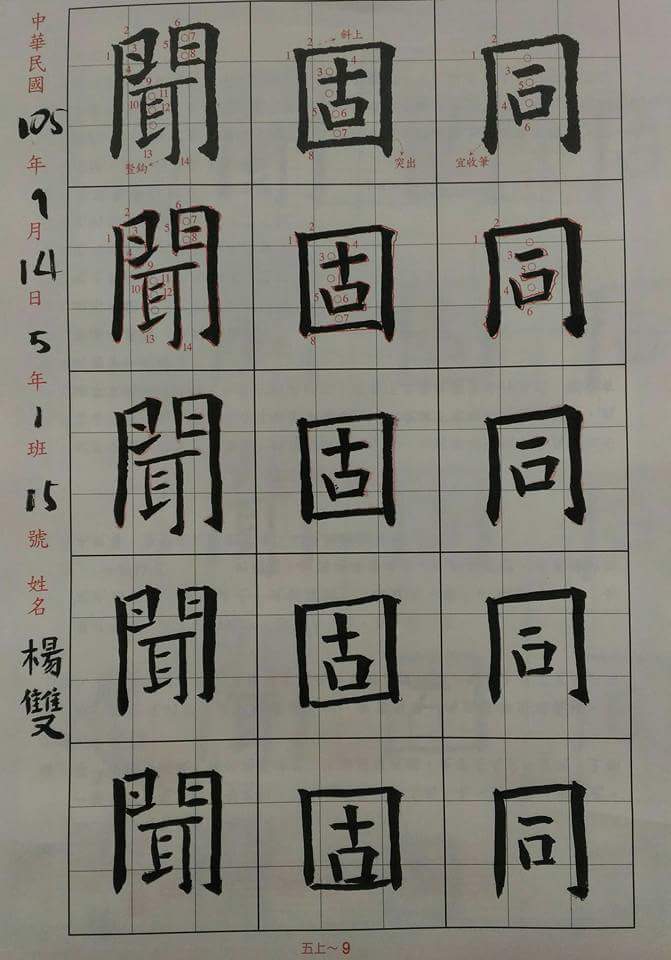 同同同同同
宜收筆
固固固固固
斜上
突出
聞聞聞聞聞
豎鈎
中華民國105年9月14日5年1班15號 姓名 楊雙
五上～9